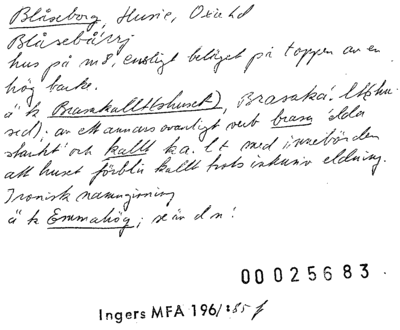 Blåseborg, Husie, Oxie hd
Blåsebårrj
hus på nr 8, ensligt beläget på toppen av en
hög backe.
ä k Brasakalltshuset), Brasaka
sed); av ett annars ovanligt verb brasa 'elda
starkt' och kallt med innebörden
att huset förblir kallt trots intensiv eldning.
Ironisk namngivning
ä k Emmahög; se än d n!
00025683
Ingers MFA 196/:85 f